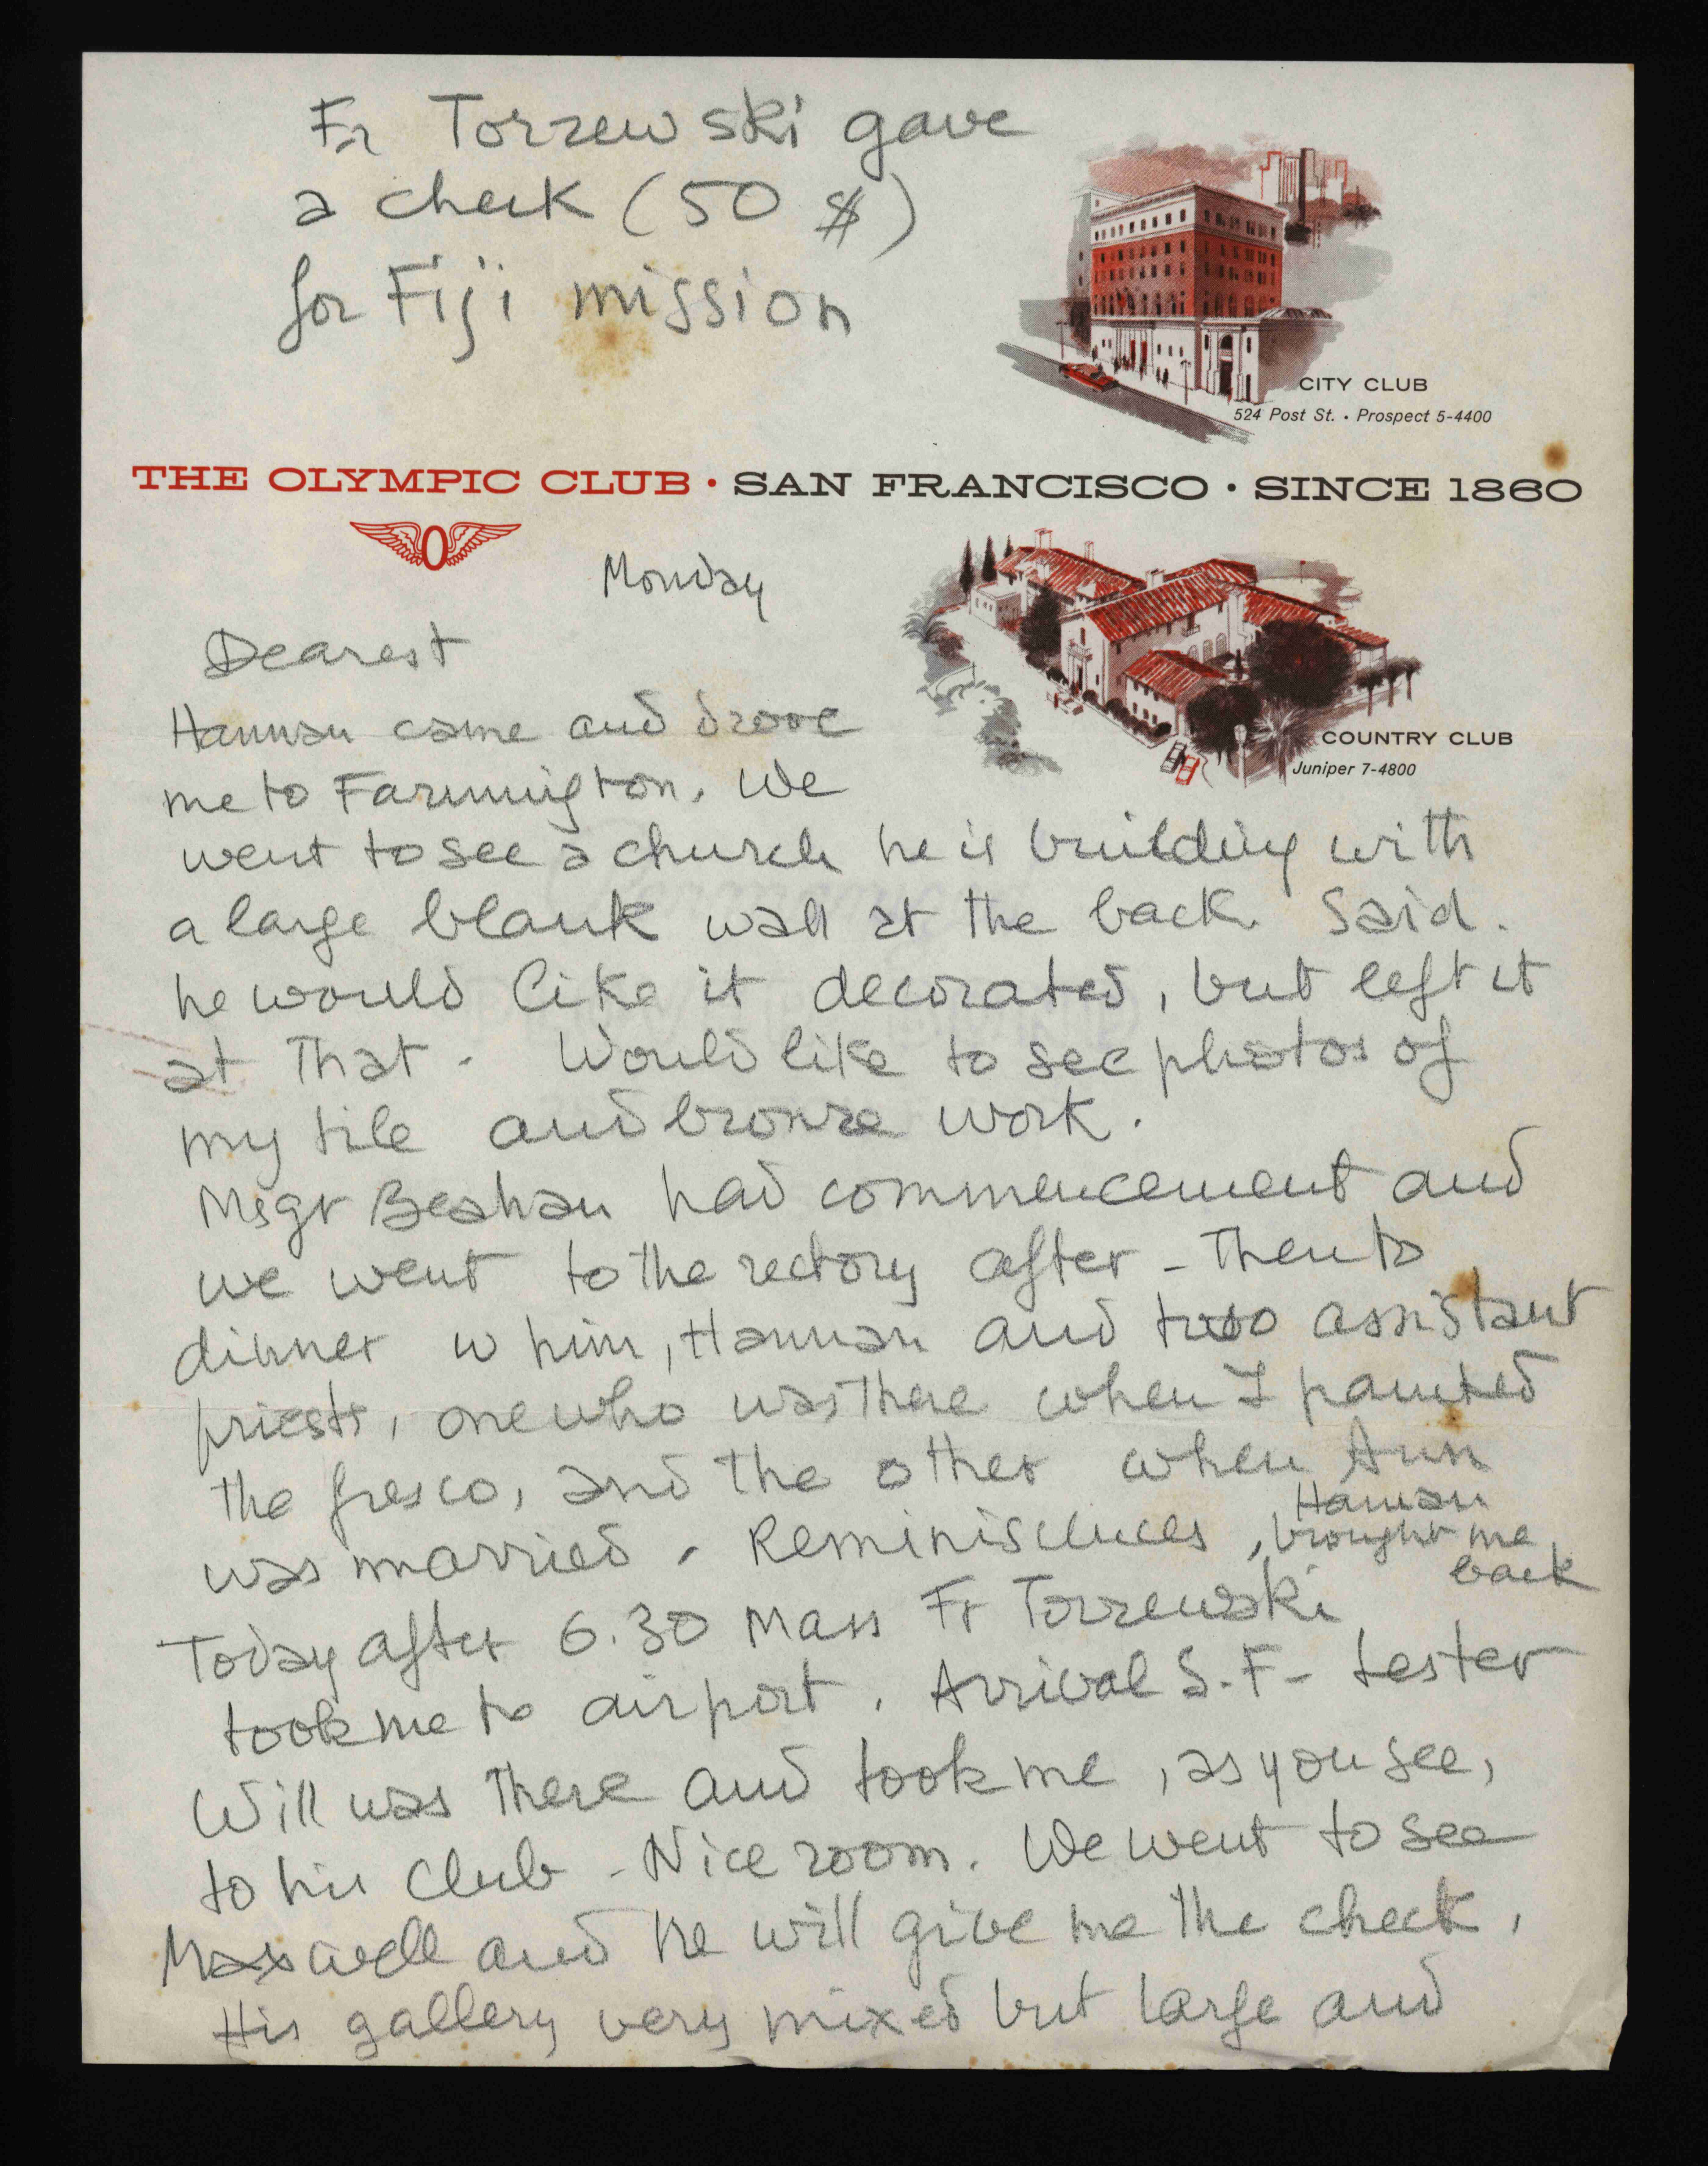 Fr Torzewski gave
a check (50 $)
for Fiji mission
CITY CLUB
524 Post St. • Prospect 5-4400
THE OLYMPIC CLUB • SAN FRANCISCO • SINCE 1860
O
Monday
COUNTRY CLUB
Juniper 7-4800
Dearest
Hannan came and drove
me to Farmington. We
went to see a church he is building with
a large blank wall at the back. Said.
he would like it decorated, but left it
at that. Would like to see photos of
my tile and bronze work.
Msgr Beahan had commencement and
we went to the rectory after - then to
dinner w him, Hannan and two assistant
priests, one who was there when I painted
the fresco, and the other when Ann
was married. Reminiscences, Hannan
brought me
back
Today after 6.30 Mass Fr Torzewski
took me to airport. Arrival S.F- Lester
Will was there and took me, as you see,
to his Club - Nice room. We went to see
Maxwell and he will give me the check.
His gallery very mixed but large and